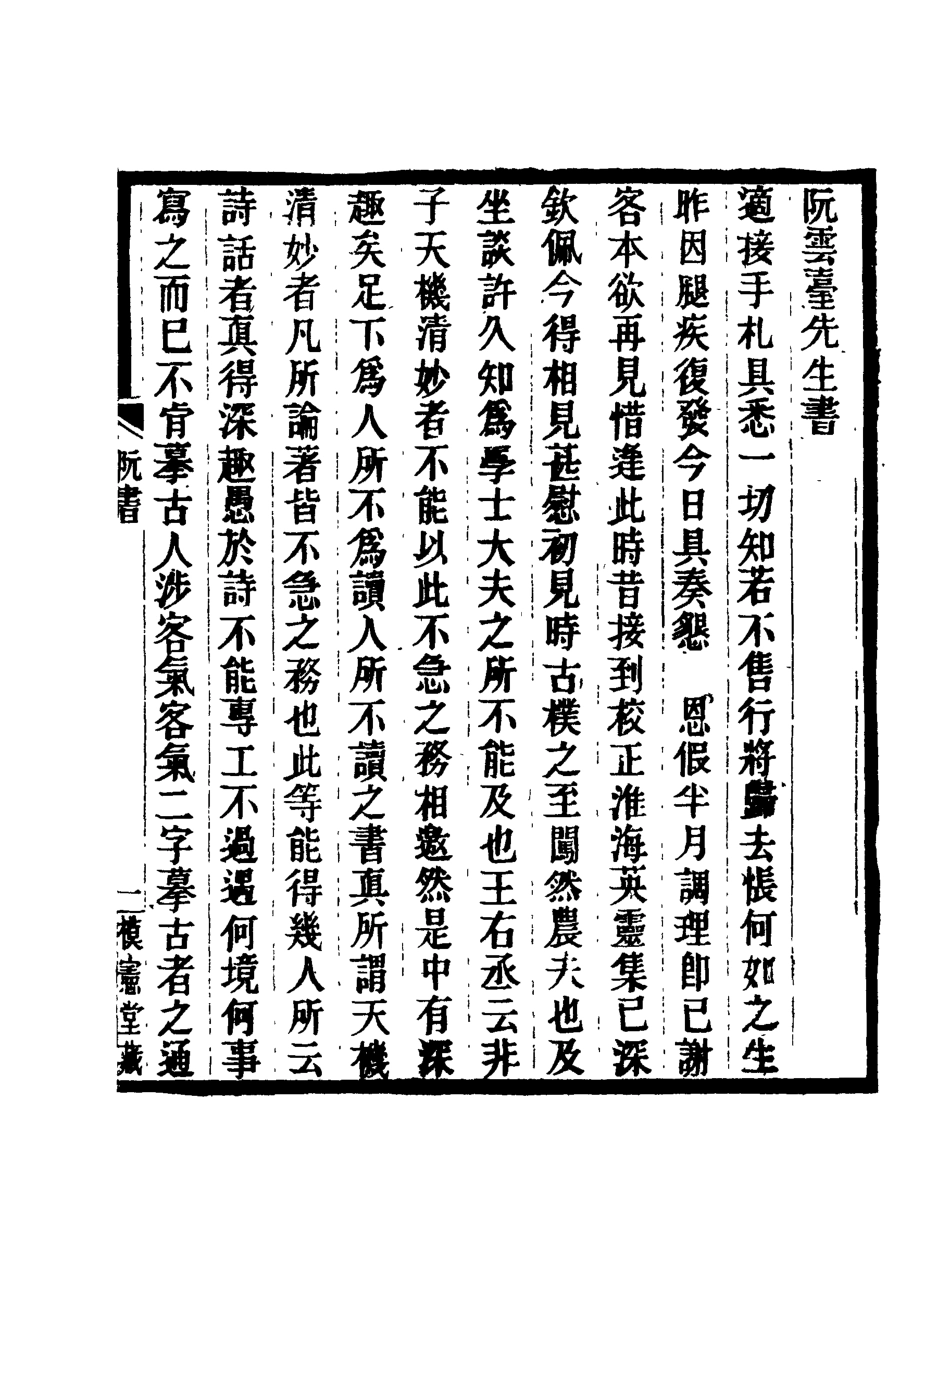 阮雲臺先生書
適接手札具悉一切知若不售行將歸去悵何如之生
昨因腿疾復發今日具奏懇　恩假半月調理卽已謝
客本欲再見惜逢此時昔接到校正淮海英靈集已深
欽佩今得相見甚慰初見時古樸之至闖然農夫也及
坐談許久知爲學士大夫之所不能及也王右丞云非
子天機清妙者不能以此不急之務相邀然是中有深
趣矣足下爲人所不爲讀人所不讀之書真所謂天機
清妙者凡所論著皆不急之務也此等能得幾人所云
詩話者真得深趣愚於詩不能專工不過遇何境何事
寫之而已不肯摹古人涉客氣客氣二字摹古者之通
阮書
一
模憲堂藏